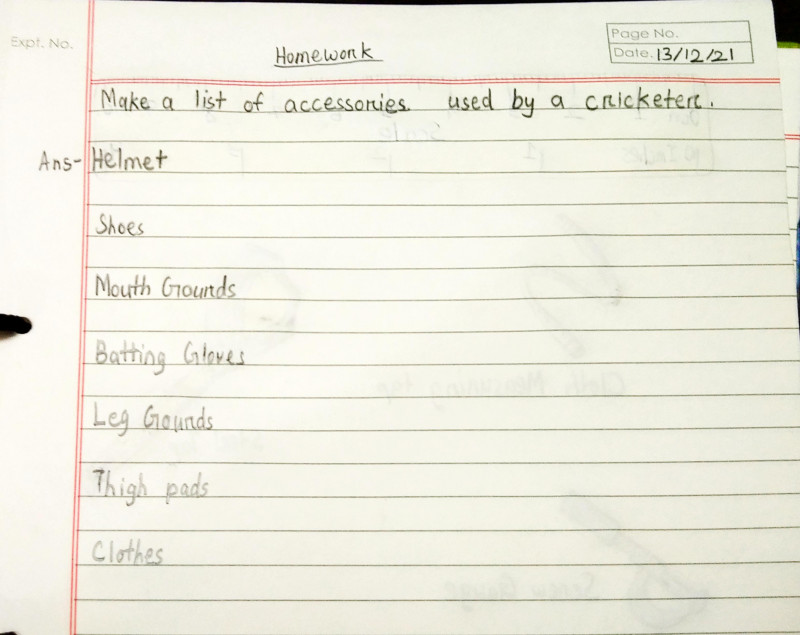 Expt. No.
Page No.
Date. 13/12/21
Homework
Make a list of accessories used by a cricketer.
Ans- Helmet
Shoes
Mouth Grounds
Batting Gloves
Leg Grounds
Thigh pads
Clothes